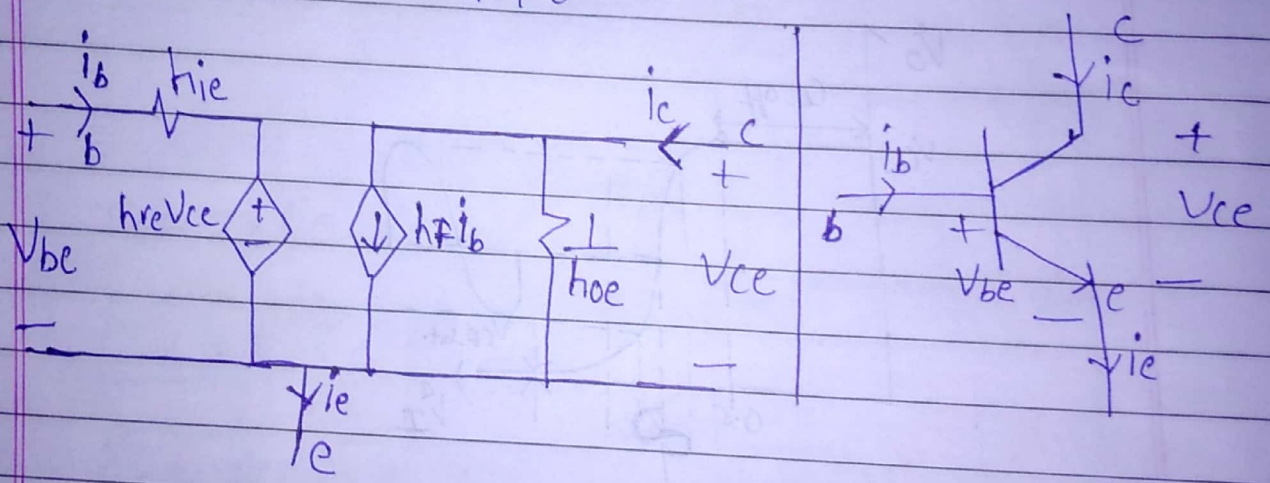 ib
hie
+
b
hreVce
+
−
Vbe
−
hfib
1
hoe
ic
c
+
Vce
−
ie
e
c
ic
ib
b
+
Vbe
−
+
Vce
−
e
ie